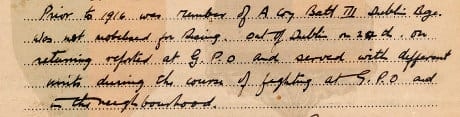 Prior to 1916 was member of A Coy Batt III Dublin Bge.
Was not mobilised for Rising. Out of Dublin on 24th. on
returning reported at G.P.O and served with different
units during the course of fighting at G.P.O and
in the neighbourhood.